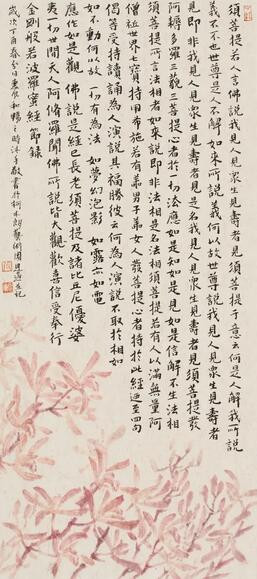 須菩提若人言佛說我見人見眾生見壽者見須菩提於意云何是人解我所說
義不不也世尊是人不解如來所說義何以故世尊說我見人見眾生見壽者
見即非我見人見眾生見壽者見是名我見人見眾生見壽者見須菩提發
阿耨多羅三藐三菩提心者於一切法應如是知如是見如是信解不生法相
須菩提所言法相者如來說即非法相是名法相須菩提若有人以滿無量阿
僧祇世界七寶持用布施若有善男子善女人發菩提心者持於此經乃至四句
偈等受持讀誦為人演說其福勝彼云何為人演說不取於相如
如不動何以故一切有為法如夢幻泡影如露亦如電
應作如是觀佛說是經已長老須菩提及諸比丘尼優婆
夷一切世間天人阿修羅聞佛所說皆大歡喜信受奉行
金剛般若波羅蜜經節錄
歲次丁酉春分日惠風和暢之時沐手敬書於